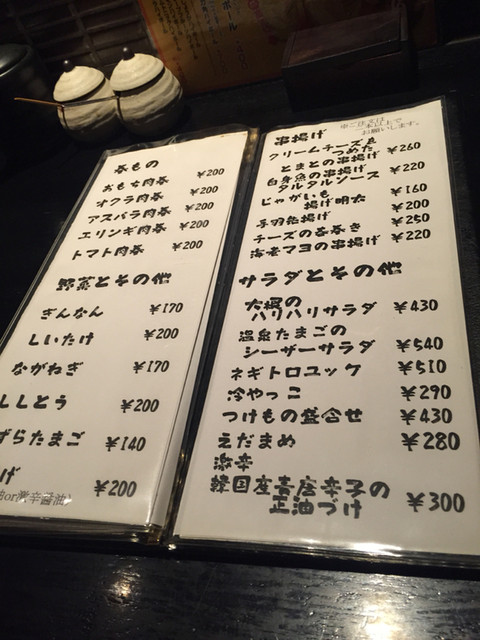 巻もの
おもち肉巻 ¥200
オクラ肉巻 ¥200
アスパラ肉巻 ¥200
エリンギ肉巻 ¥200
トマト肉巻 ¥200
野菜とその他
ぎんなん ¥170
しいたけ ¥200
ながねぎ ¥170
ししとう ¥200
ずらたまご ¥140
げ ¥200
油or激辛醤油)
串揚げ
二本以上で
お願いします。
クリームチーズを
つめた
とまとの串揚げ ¥260
白身魚の串揚げ
タルタルソース ¥220
じゃがいも
揚げ明太 ¥160
手羽先揚げ ¥200
チーズの春巻き ¥250
海老マヨの串揚げ ¥220
サラダとその他
大根の
ハリハリサラダ ¥430
温泉たまごの
シーザーサラダ ¥540
ネギトロユッケ ¥510
冷やっこ ¥290
つけもの盛合せ ¥430
えだまめ ¥280
激辛
韓国産青唐辛子の
正油づけ ¥300